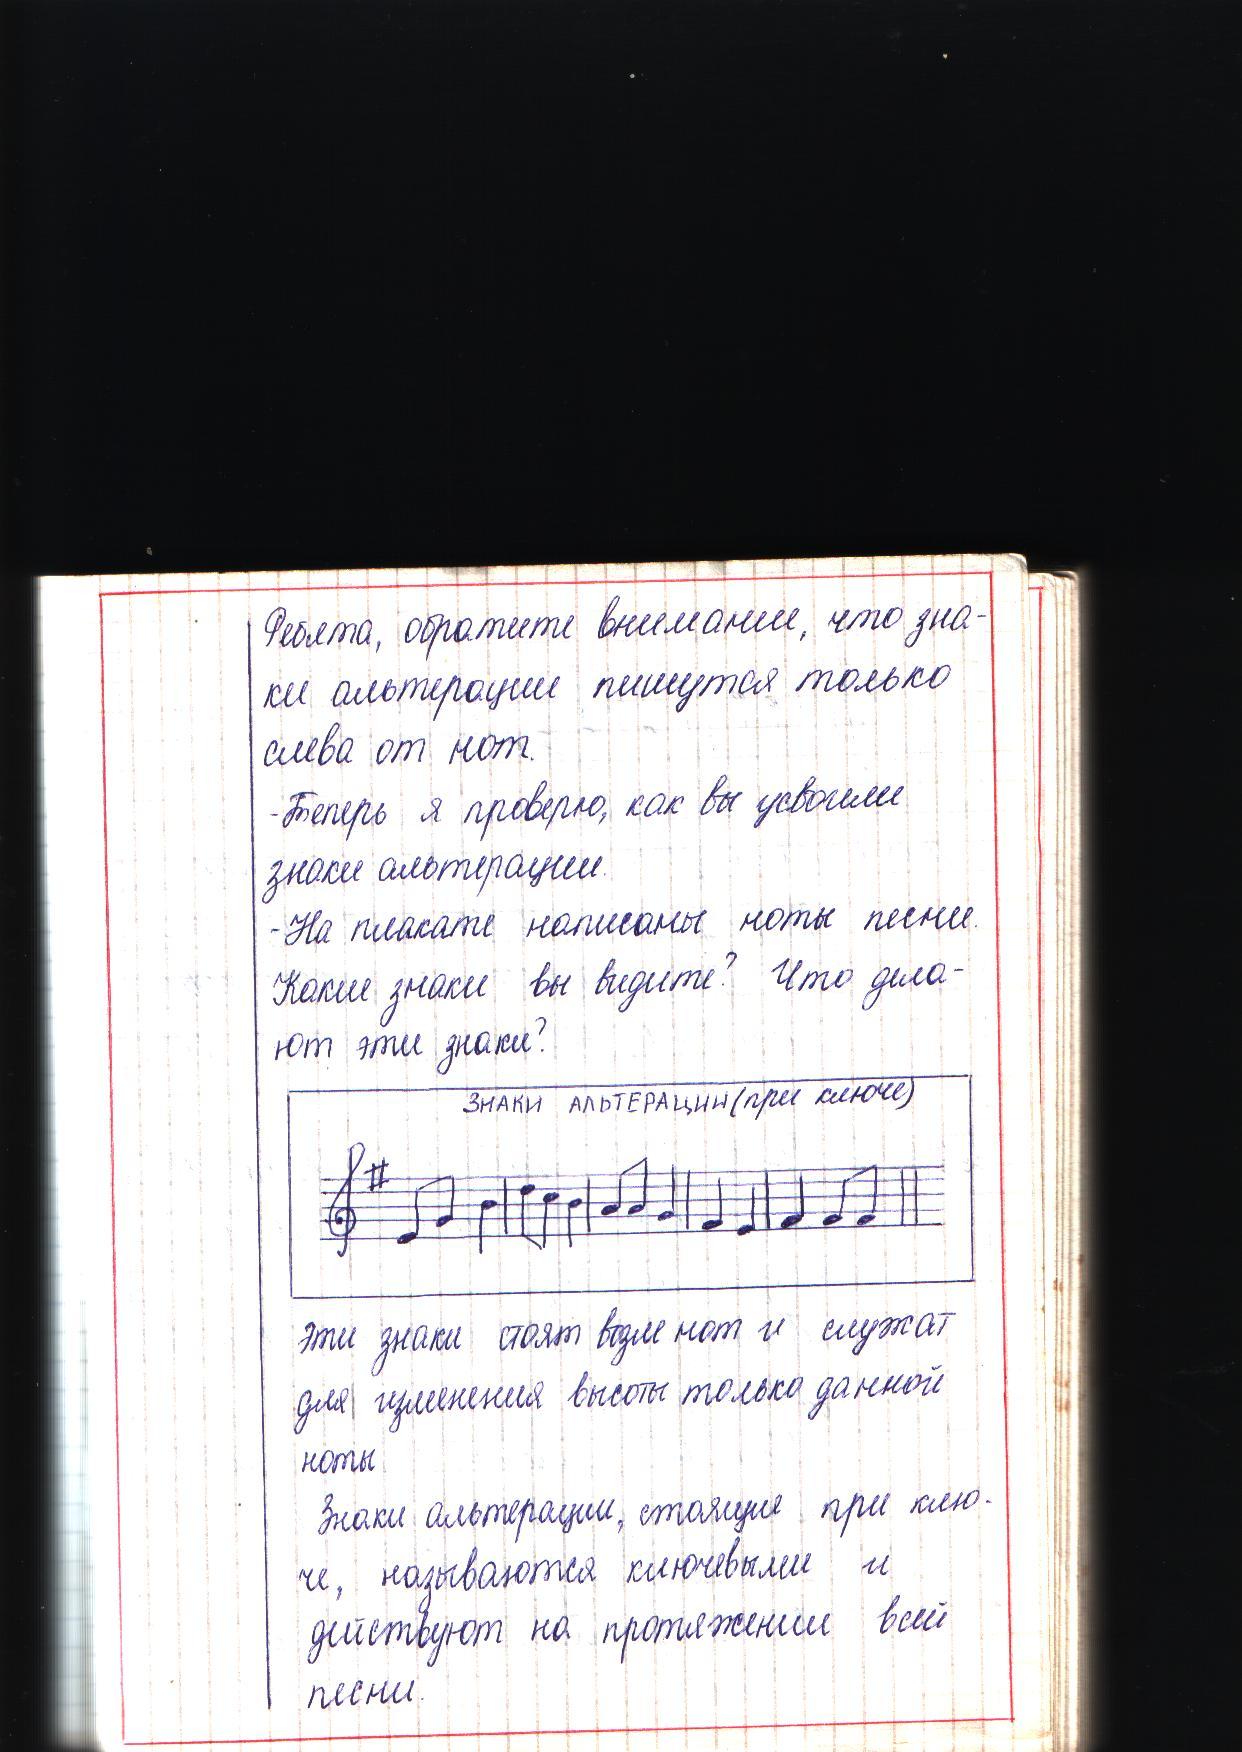 Ребята, обратите внимание, что зна-
ки альтерации пишутся только
слева от нот.
-Теперь я проверю, как вы усвоили
знаки альтерации.
-На плакате написаны ноты песни.
Какие знаки вы видите? Что дела-
ют эти знаки?
ЗНАКИ АЛЬТЕРАЦИИ (при ключе)
Эти знаки стоят возле нот и служат
для изменения высоты только данной
ноты
Знаки альтерации, стоящие при клю-
че, называются ключевыми и
действуют на протяжении всей
песни.